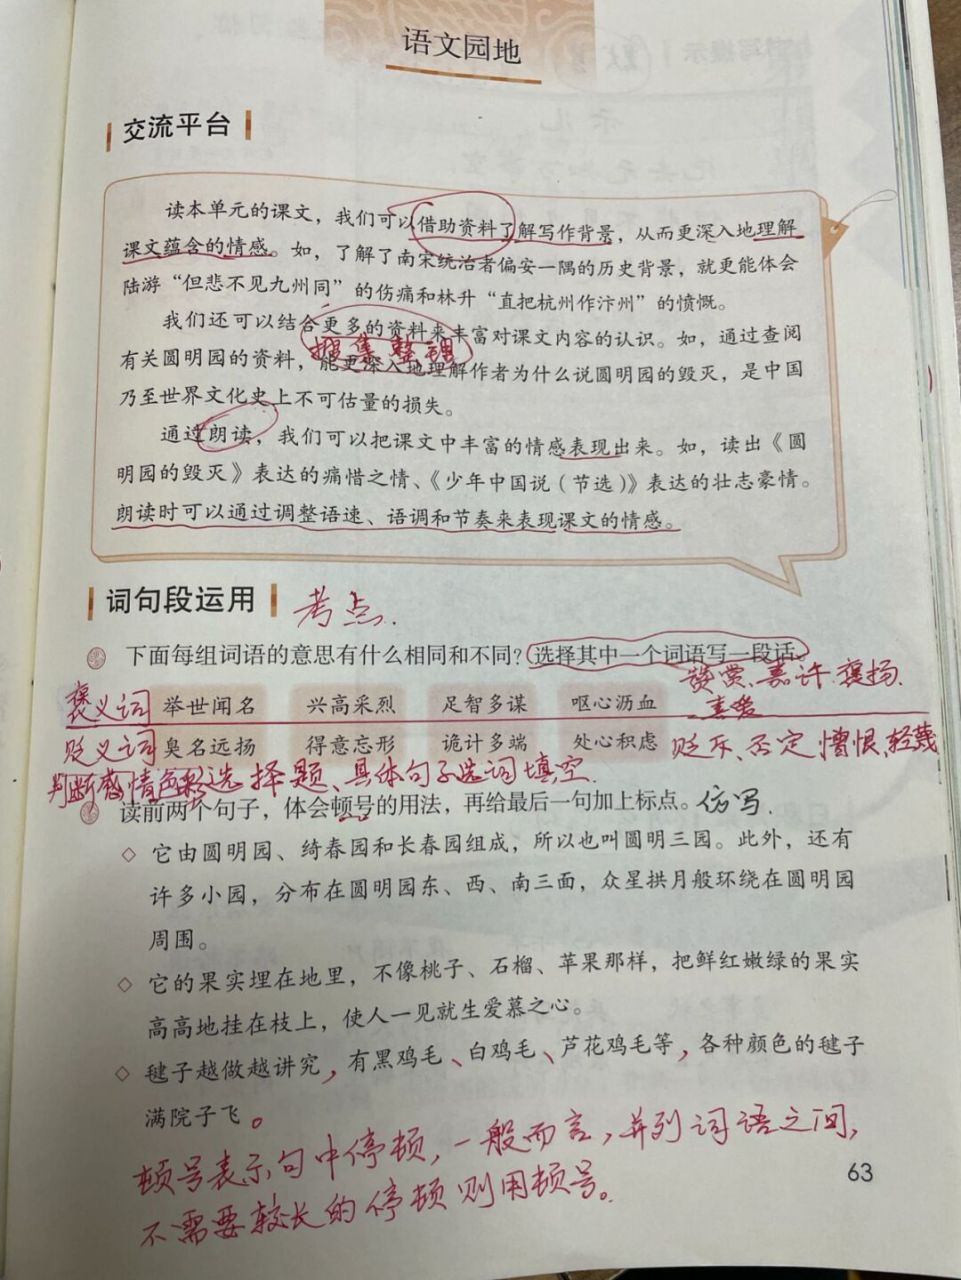 语文园地
交流平台
读本单元的课文，我们可以借助资料了解写作背景，从而更深入地理解
课文蕴含的情感。如，了解了南宋统治者偏安一隅的历史背景，就更能体会
陆游“但悲不见九州同”的伤痛和林升“直把杭州作汴州”的愤慨。
我们还可以结合更多的资料来丰富对课文内容的认识。如，通过查阅
搜集 整理
有关圆明园的资料，能更深入地理解作者为什么说圆明园的毁灭，是中国
乃至世界文化史上不可估量的损失。
通过朗读，我们可以把课文中丰富的情感表现出来。如，读出《圆
明园的毁灭》表达的痛惜之情、《少年中国说（节选）》表达的壮志豪情。
朗读时可以通过调整语速、语调和节奏来表现课文的情感。
词句段运用 考点.
下面每组词语的意思有什么相同和不同？选择其中一个词语写一段话。
赞赏、嘉许、褒扬、
喜爱
褒义词 举世闻名 兴高采烈 足智多谋 呕心沥血
贬义词 臭名远扬 得意忘形 诡计多端 处心积虑 贬斥、否定、憎恨、轻蔑
判断感情色彩选择题、具体句子选词填空.
读前两个句子，体会顿号的用法，再给最后一句加上标点。仿写.
◇ 它由圆明园、绮春园和长春园组成，所以也叫圆明三园。此外，还有
许多小园，分布在圆明园东、西、南三面，众星拱月般环绕在圆明园
周围。
◇ 它的果实埋在地里，不像桃子、石榴、苹果那样，把鲜红嫩绿的果实
高高地挂在枝上，使人一见就生爱慕之心。
◇ 毽子越做越讲究，有黑鸡毛、白鸡毛、芦花鸡毛等，各种颜色的毽子
满院子飞。
顿号表示句中停顿，一般而言，并列词语之间，
不需要较长的停顿则用顿号。
63